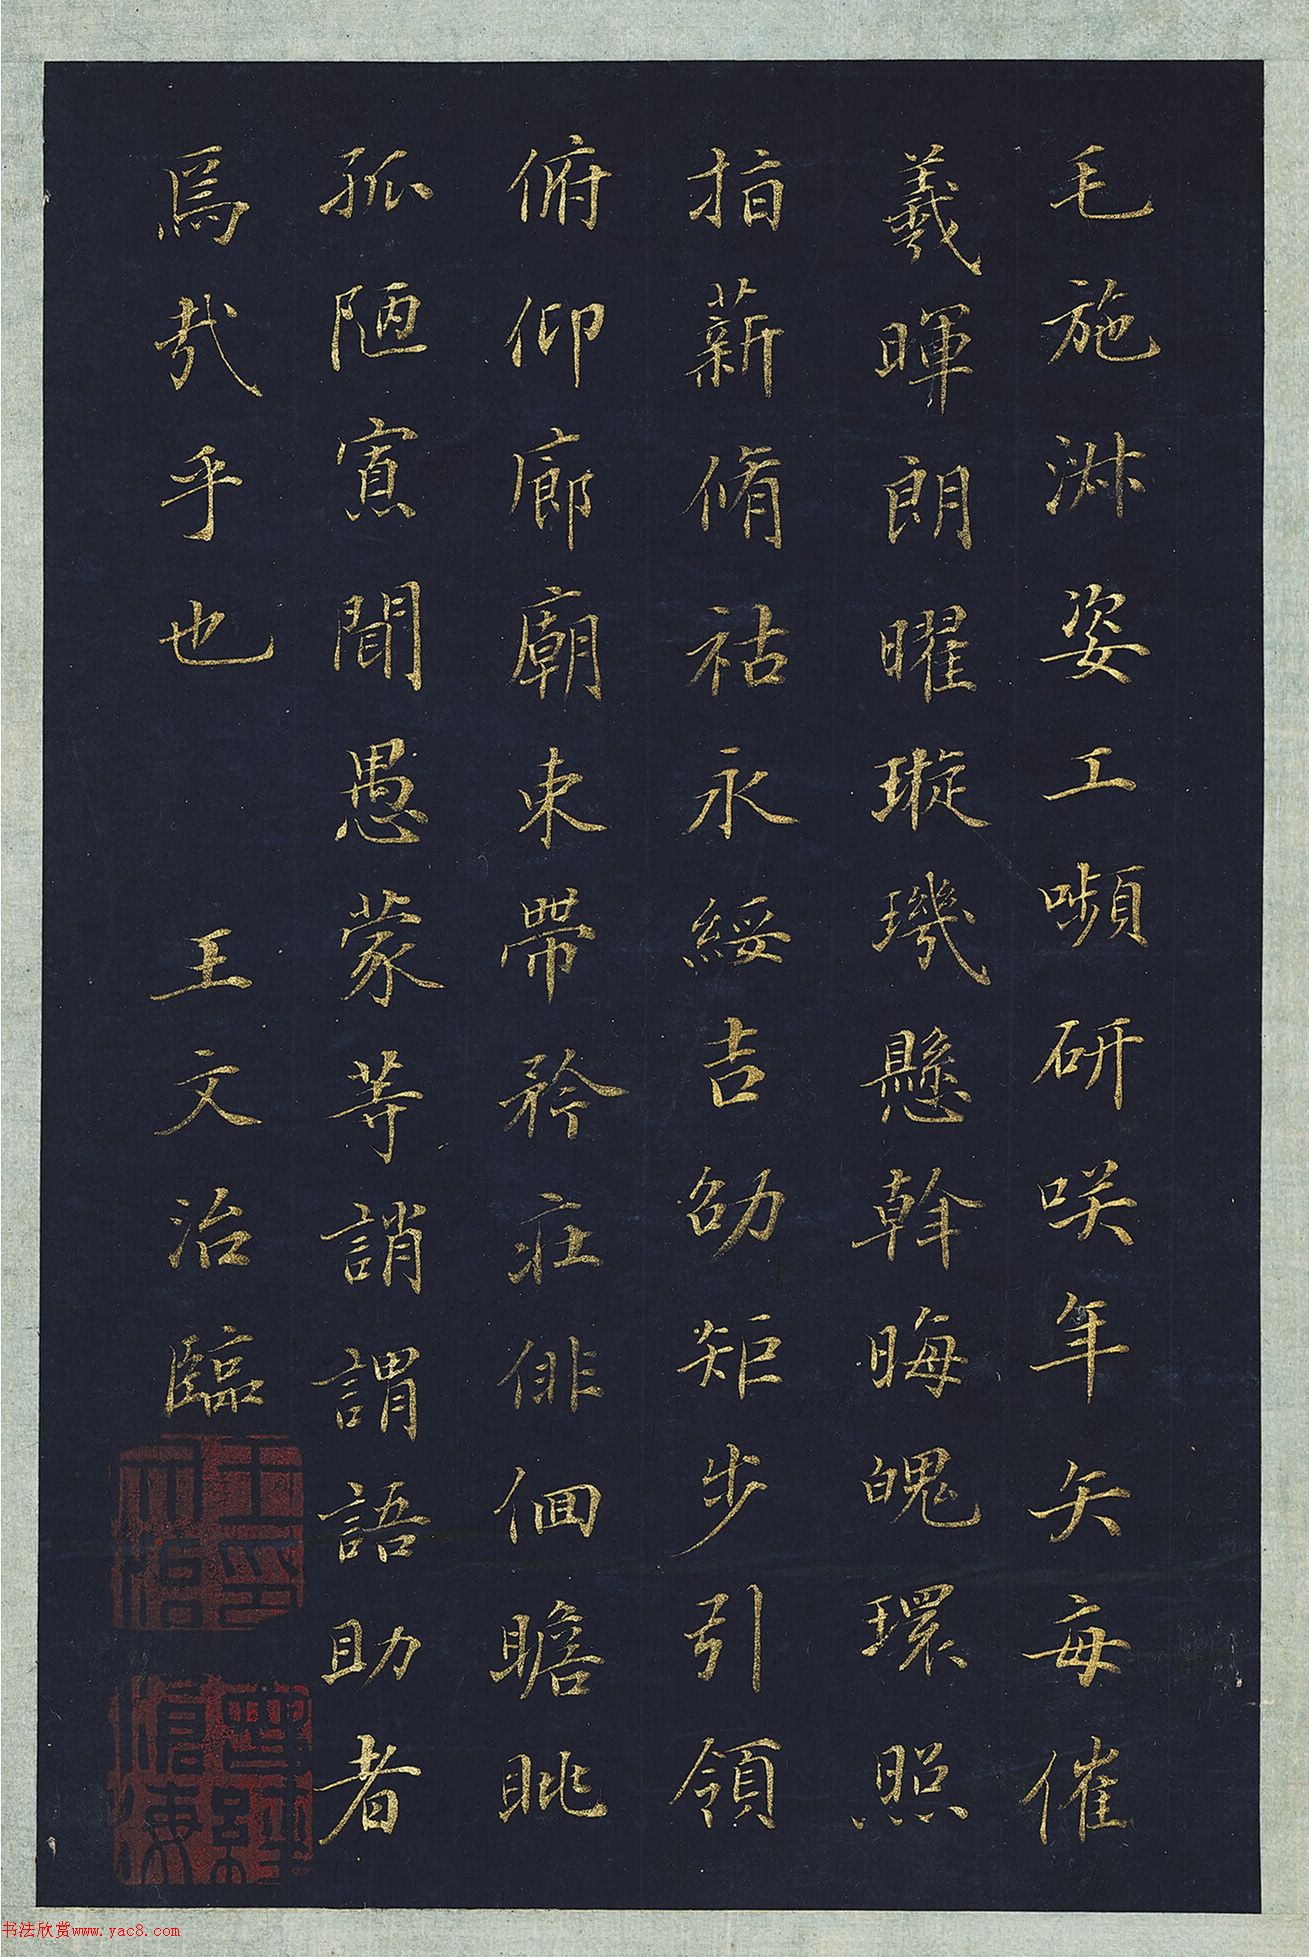 毛施淑姿工嚬研咲年矢每催
羲暉朗曜璇璣懸斡晦魄環照
指薪脩祜永綏吉劭矩步引領
俯仰廊廟束帶矜莊俳佪瞻眺
孤陋寡聞愚蒙等誚謂語助者
焉哉乎也 王文治臨
书法欣赏www.yac8.com